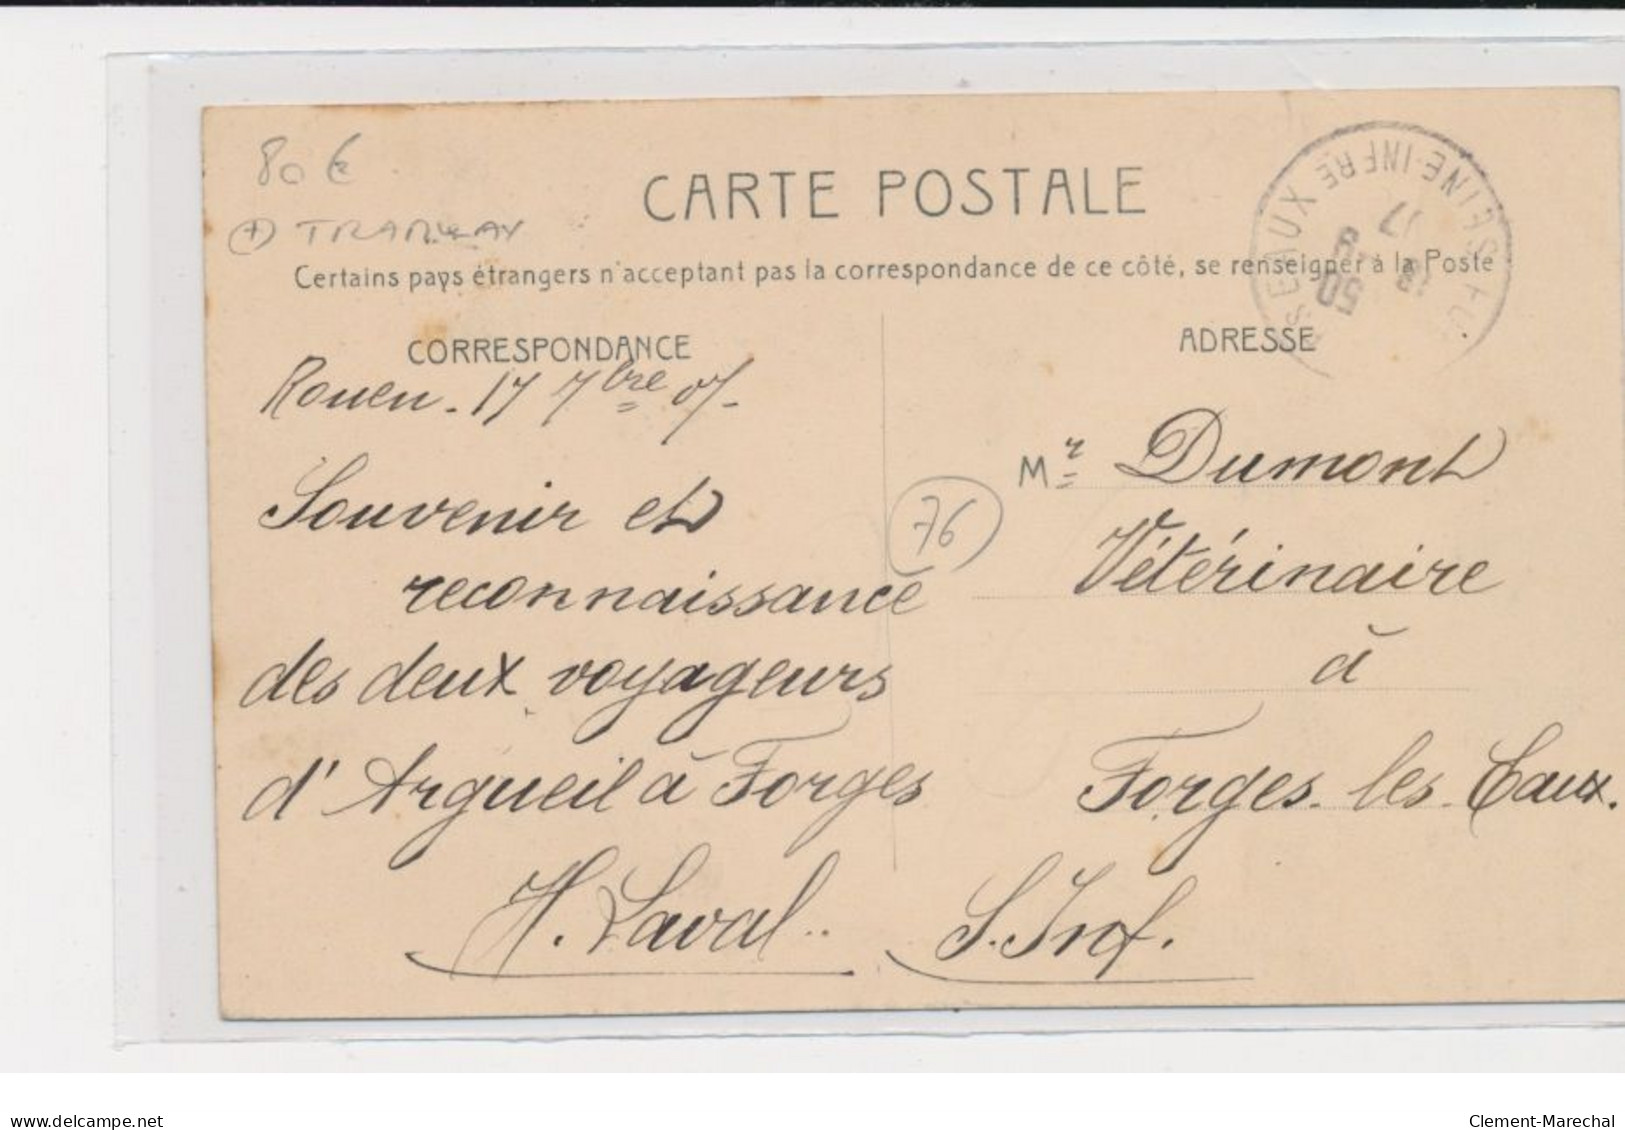 80 €
(+) TRAMWAY
CARTE POSTALE
Certains pays étrangers n'acceptant pas la correspondance de ce côté, se renseigner à la Poste
SEAUX SEINE-INFRE
17
9
50
CORRESPONDANCE
Rouen. 17 7bre 07.
Souvenir et
reconnaissance
des deux voyageurs
d'Argueil à Forges
H. Laval..
76
ADRESSE
Mr Dumont
Vétérinaire
à
Forges. les. Eaux.
delcampe.net
Clement-Marechal